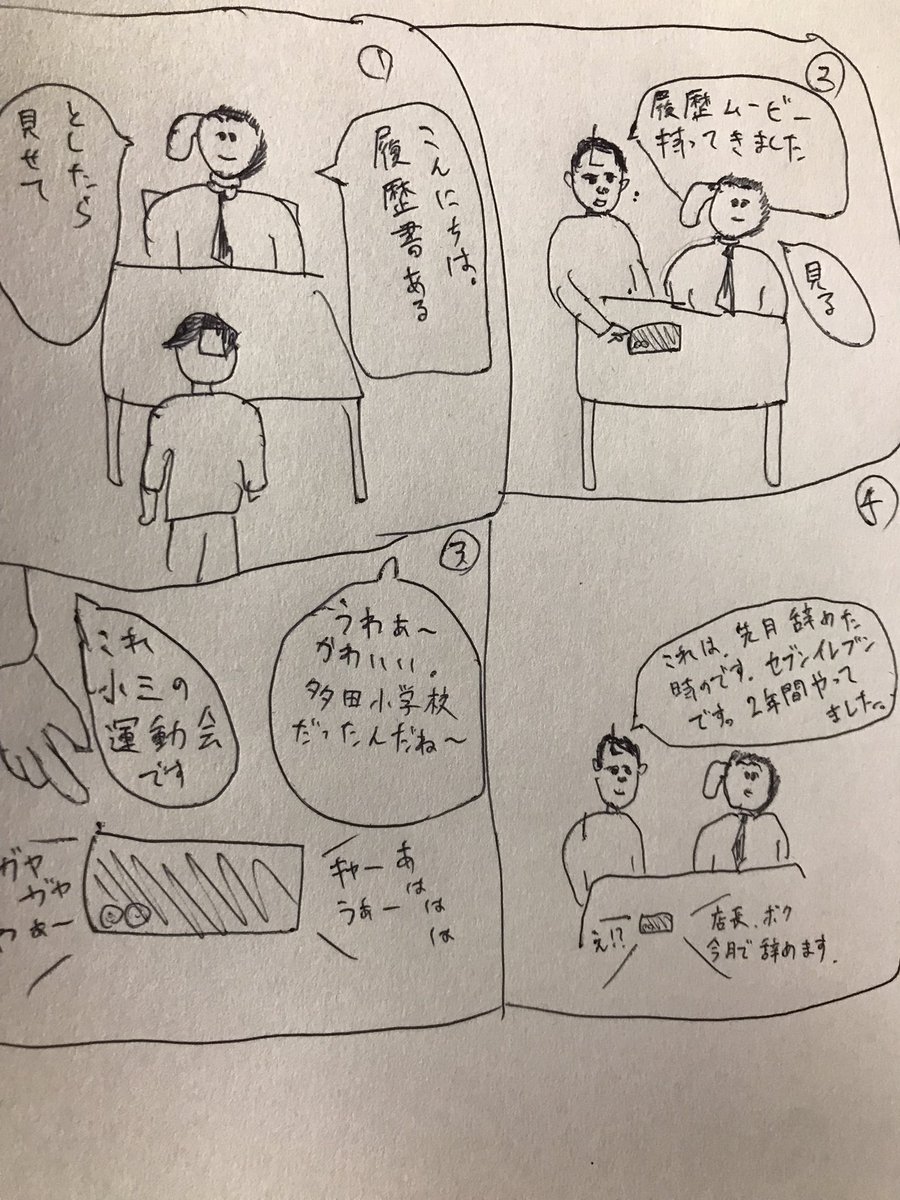 ①
こんにちは。
履歴書ある
としたら
見せて
②
履歴ムービー
持ってきました
見る
③
うわぁ〜
かわいい。
多田小学校
だったんだね〜
これ
小三の
運動会
です
キャーあ
うぁーは
は
は
ガヤ
ガヤ
うぁ〜
④
これは、先月辞めた
時のです。セブンイレブン
です。2年間やって
ました。
店長、ボク
今月で辞めます.
え!?